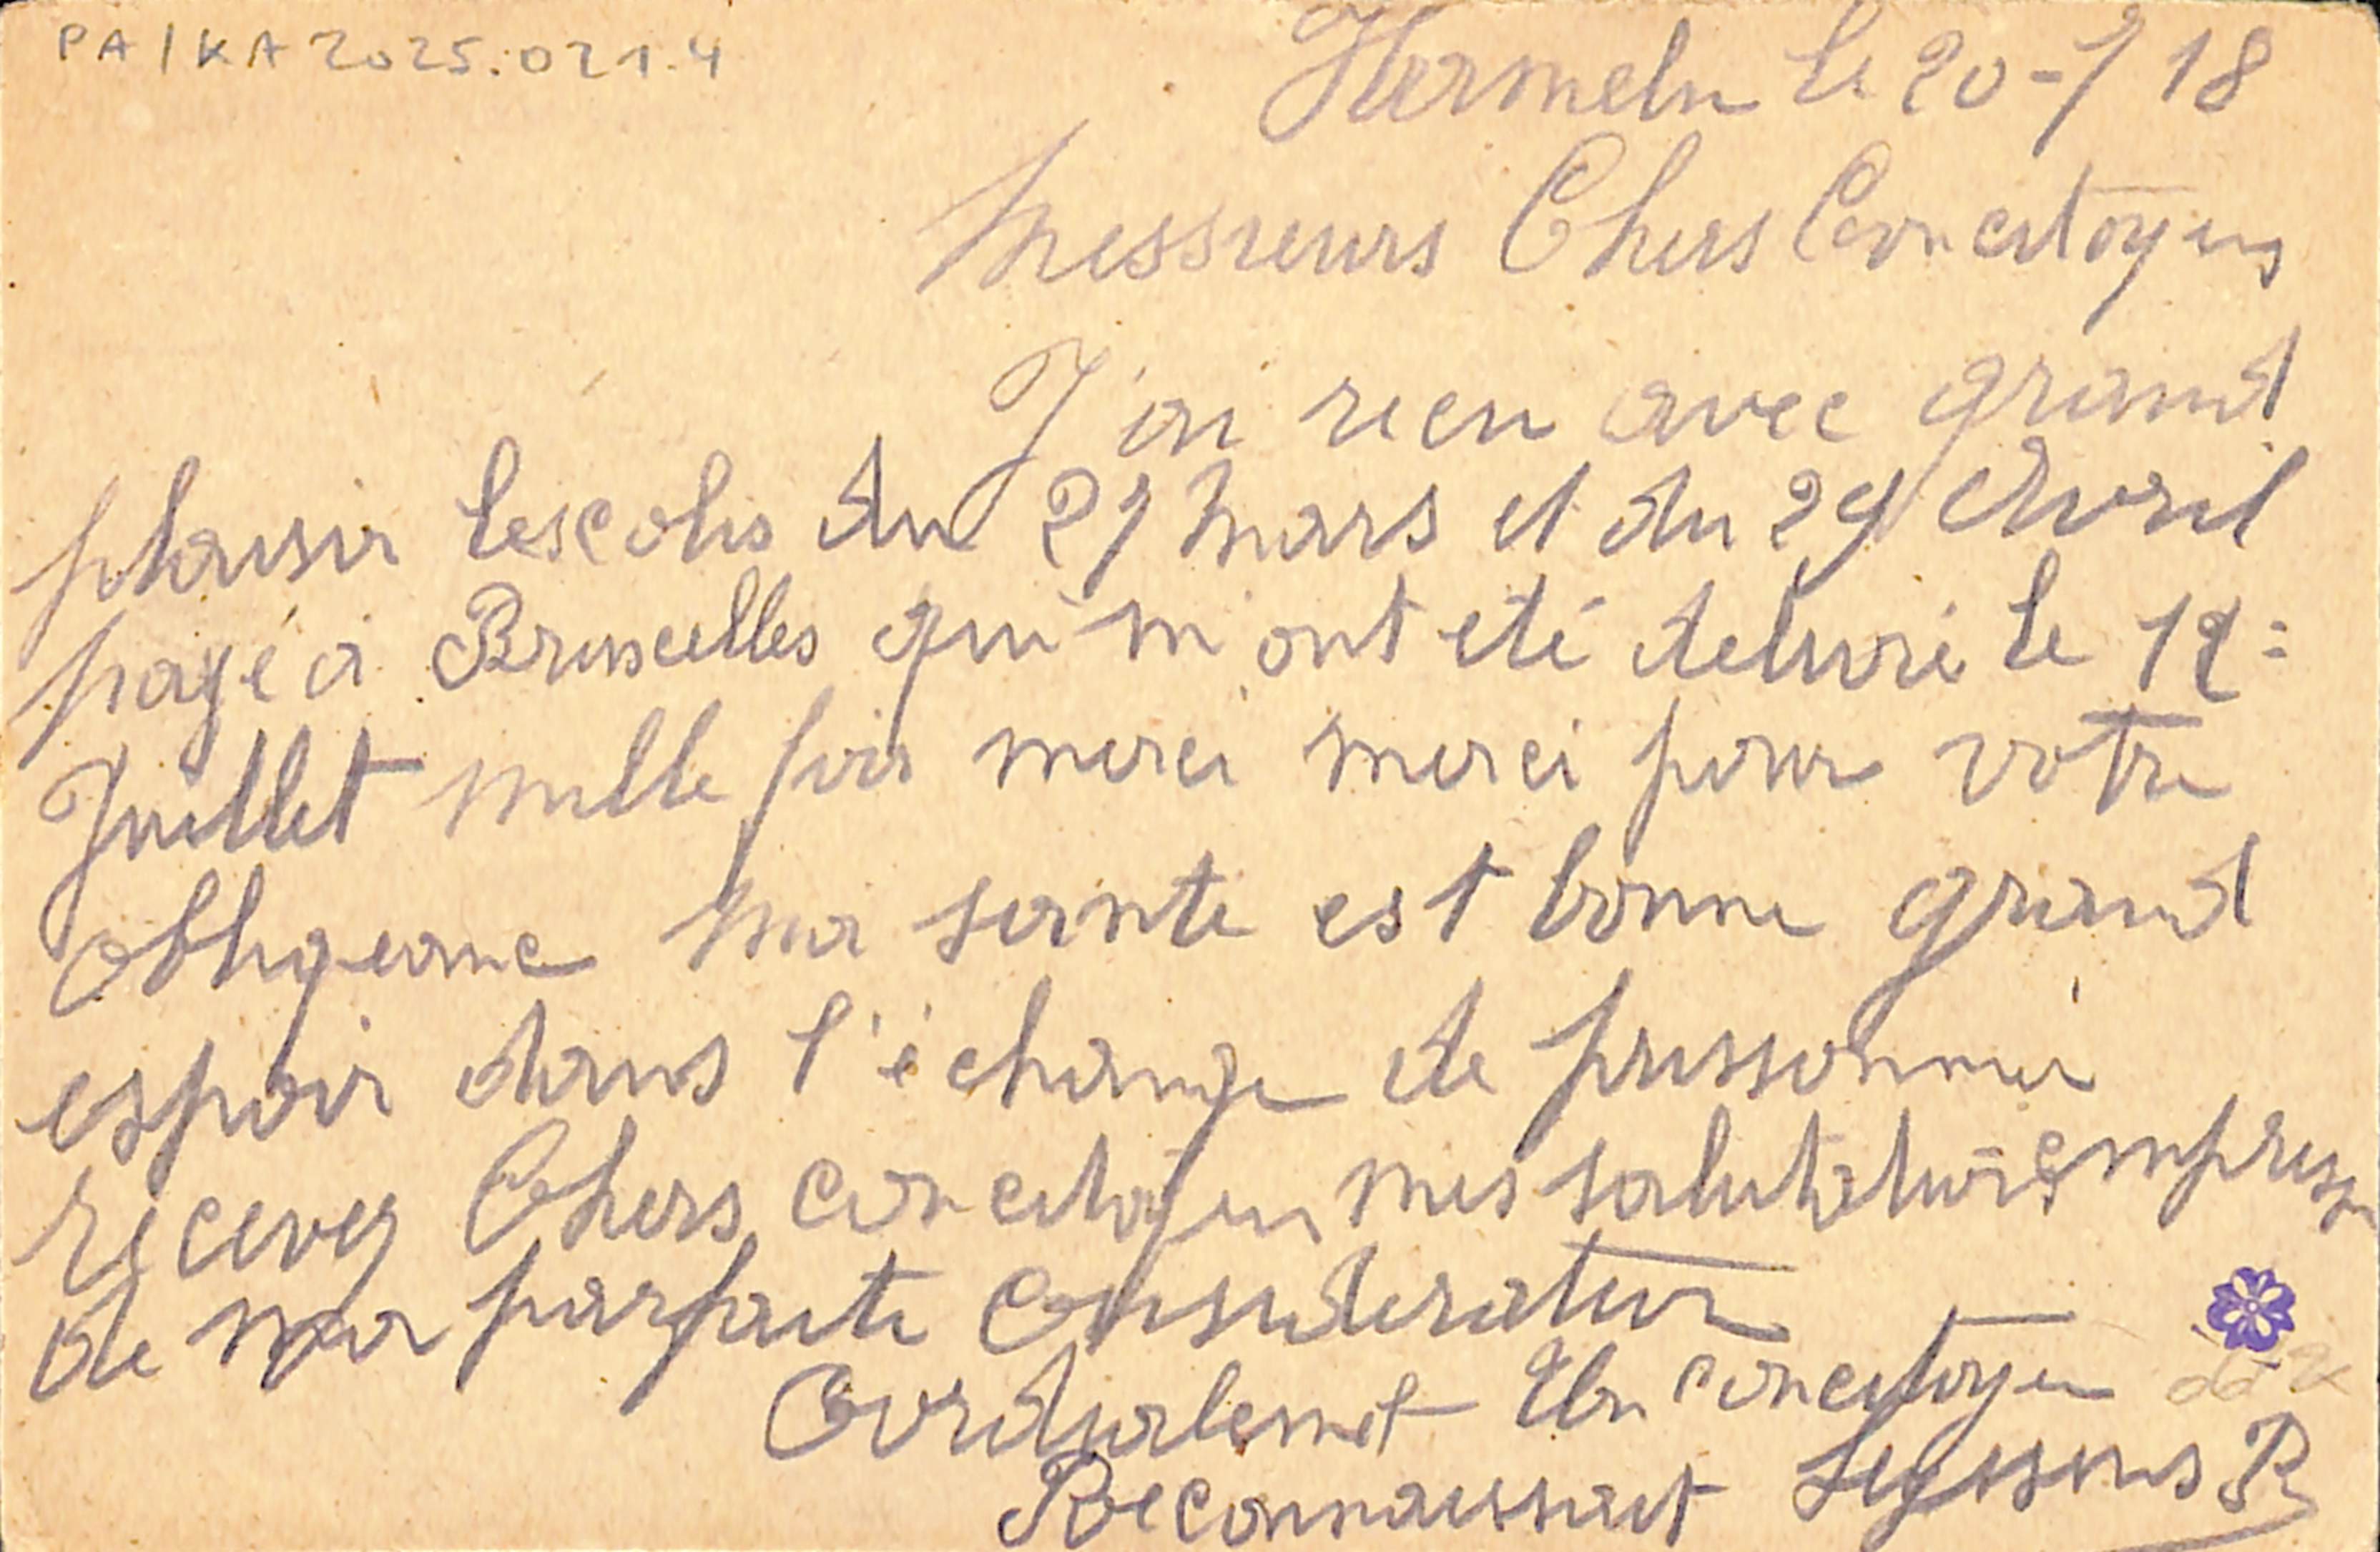 PA/KA 2025.021.4
Hameln le 20-7 18
Messieurs Chers Concitoyens
J'ai recu avec grand
plaisir les colis du 27 Mars et du 29 Avril
payé a Bruxelles qui m'ont eté delivré le 12=
Juillet mille fois merci merci pour votre
obligeance ma santé est bonne grand
espoir dans l'échange de prisonnier
recevez Chers concitoyens mes salutations
de ma parfaite consideration
Cordialement Un concitoyen
Reconnaissant Seyssens R